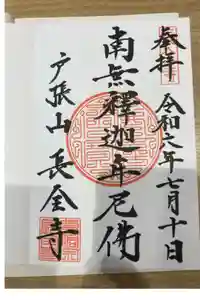 奉拝
令和六年七月十日
南無釋迦牟尼佛
戸張山 長全寺